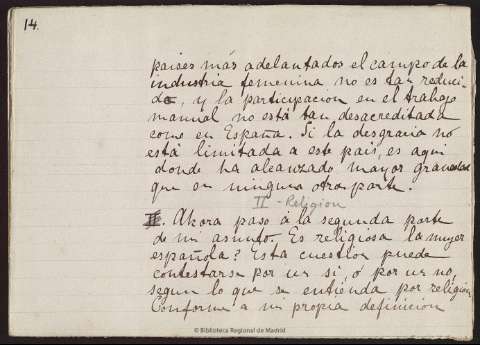 14.
paises más adelantados el campo de la
industria femenina no es tan reduci-
do, y la participacion en el trabajo
manual no está tan desacreditada
como en España. Si la desgracia no
está limitada a este pais, es aqui
donde ha alcanzado mayor gravedad
que en ninguna otra parte.
II - Religion
II. Ahora paso á la segunda parte
de mi asunto. Es religiosa la mujer
española? Esta cuestion puede
contestarse por un sí, ó por un no,
segun lo que se entienda por religion
Conforme a mi propia definicion
© Biblioteca Regional de Madrid